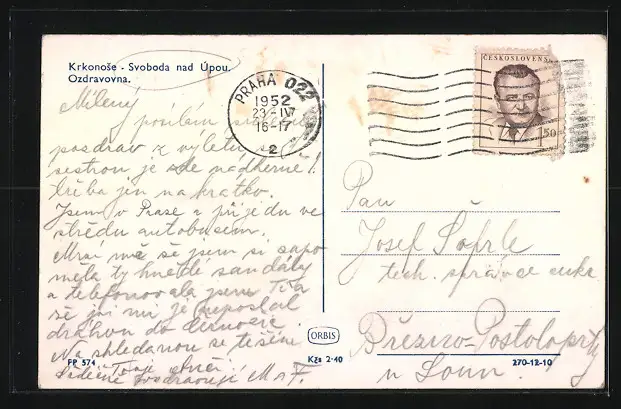 Krkonoše - Svoboda nad Úpou.
Ozdravovna.
Milený
posílám
pozdrav z výletu se
sestrou je zde nádherně!
třeba jen na krátko.
Jsem v Praze a přijedu ve
středu autobusem.
Mrzí mě že jsem si zapo
mela ty hnědé sandály
a telefonovala jsem
že jsi mi je neposlal
Na shledanou se těší
M a F.
PP 574
PRAHA 022
1952
23-IV
16-17
2
ČESKOSLOVENSKO
1.50
Pan
Josef Šoprle
tech. správce cukr.
Březno-Postoloprty
u Loun
ORBIS
Kčs 2·40
270-12-10